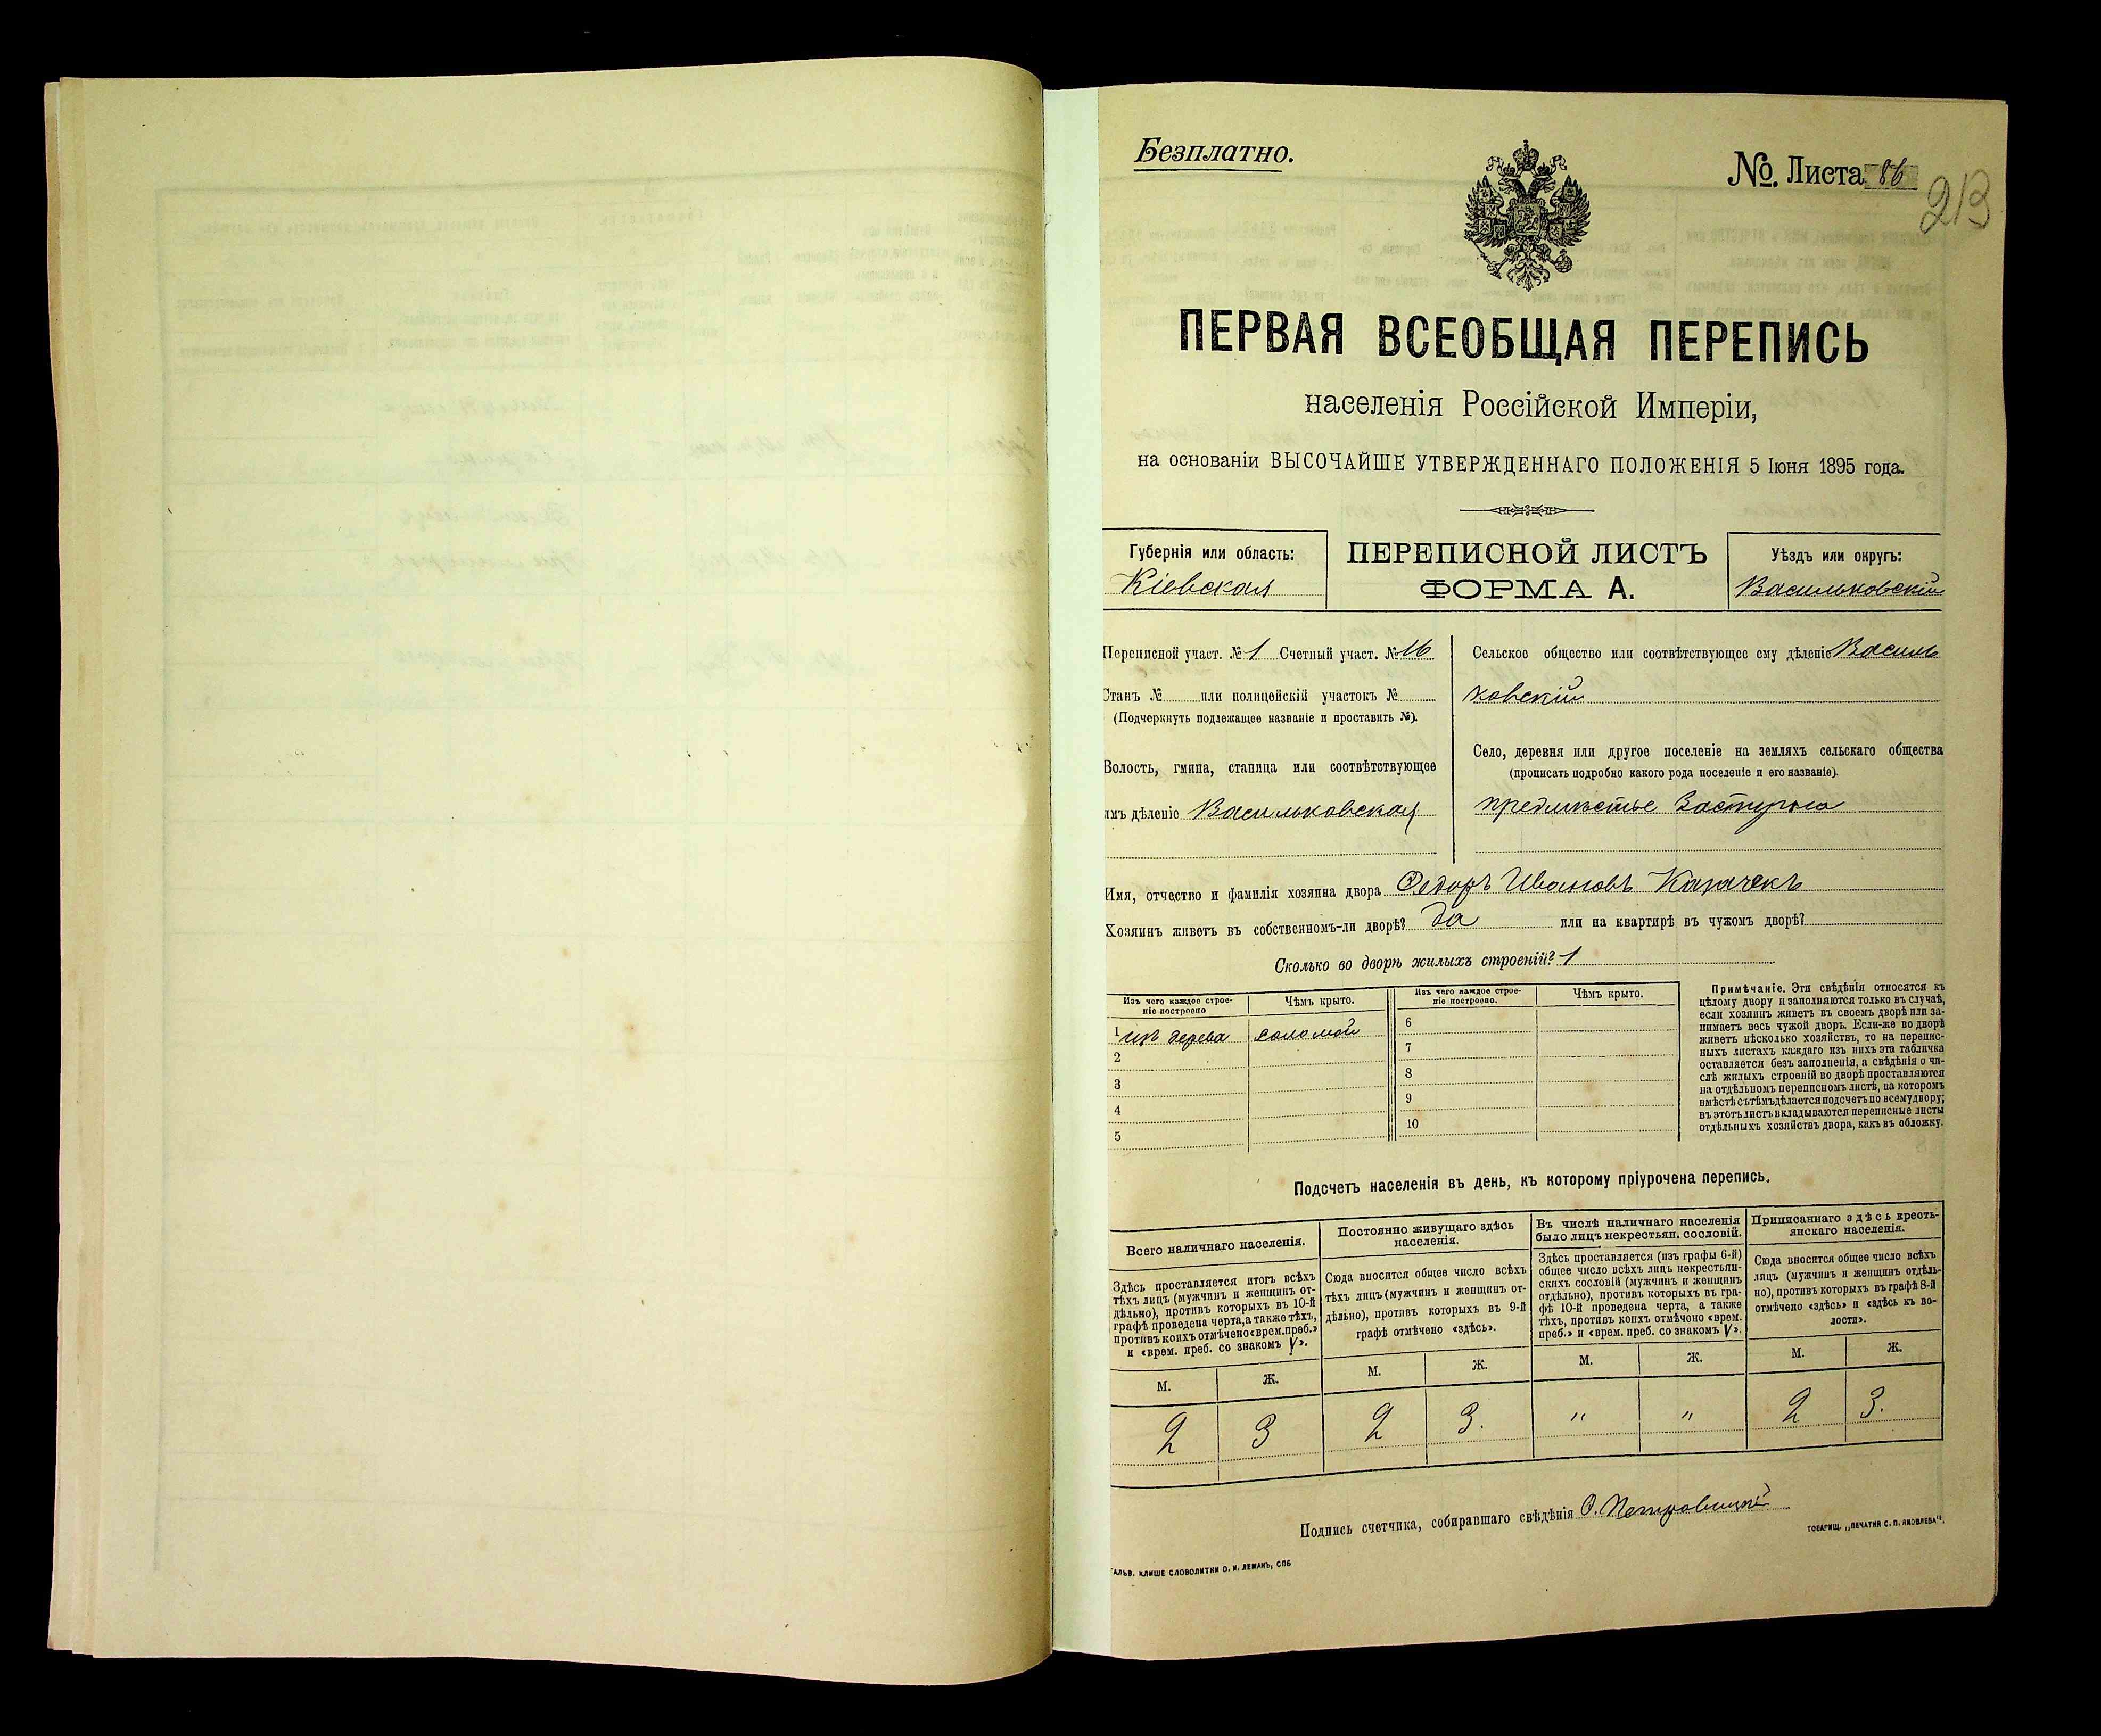 Безплатно.
№ Листа 86
213
ПЕРВАЯ ВСЕОБЩАЯ ПЕРЕПИСЬ
населенія Россійской Имперіи,
на основаніи ВЫСОЧАЙШЕ УТВЕРЖДЕННАГО ПОЛОЖЕНІЯ 5 Іюня 1895 года.
Губернія или область:
Кіевская
ПЕРЕПИСНОЙ ЛИСТЪ
ФОРМА А.
Уѣздъ или округъ:
Васильковскій
Переписной участ. № 1 Счетный участ. № 16
Станъ № или полицейскій участокъ №
(Подчеркнуть подлежащее названіе и проставить №).
Волость, гмина, станица или соотвѣтствующее
имъ дѣленіе Васильковская
Сельское общество или соотвѣтствующее ему дѣленіе Василь
ковскій
Село, деревня или другое поселеніе на земляхъ сельскаго общества
(прописать подробно какого рода поселеніе и его названіе).
предмѣстье Застугна
Имя, отчество и фамилія хозяина двора Ѳедоръ Ивановъ
Хозяинъ живетъ въ собственномъ-ли дворѣ? да или на квартирѣ въ чужомъ дворѣ?
Сколько во дворѣ жилыхъ строеній? 1
Изъ чего каждое строе-
ніе построено
Чѣмъ крыто.
1 изъ дерева соломой
2
3
4
5
Изъ чего каждое строе-
ніе построено.
Чѣмъ крыто.
6
7
8
9
10
Примѣчаніе. Эти свѣдѣнія относятся къ
цѣлому двору и заполняются только въ случаѣ,
если хозяинъ живетъ въ своемъ дворѣ или за-
нимаетъ весь чужой дворъ. Если-же во дворѣ
живетъ нѣсколько хозяйствъ, то на перепис-
ныхъ листахъ каждаго изъ нихъ эта табличка
оставляется безъ заполненія, а свѣдѣнія о чи-
слѣ жилыхъ строеній во дворѣ проставляются
на отдѣльномъ переписномъ листѣ, на которомъ
вмѣстѣ съ тѣмъ дѣлается подсчетъ по всему двору;
въ этотъ листъ вкладываются переписные листы
отдѣльныхъ хозяйствъ двора, какъ въ обложку.
Подсчетъ населенія въ день, къ которому пріурочена перепись.
Всего наличнаго населенія.
Здѣсь проставляется итогъ всѣхъ
тѣхъ лицъ (мужчинъ и женщинъ от-
дѣльно), противъ которыхъ въ 10-й
графѣ проведена черта, а также тѣхъ,
противъ коихъ отмѣчено «врем. преб.»
и «врем. преб. со знакомъ V».
М. Ж.
2 3
Постоянно живущаго здѣсь
населенія.
Сюда вносится общее число всѣхъ
тѣхъ лицъ (мужчинъ и женщинъ от-
дѣльно), противъ которыхъ въ 9-й
графѣ отмѣчено «здѣсь».
М. Ж.
2 3.
Въ числѣ наличнаго населенія
было лицъ некрестьян. сословій.
Здѣсь проставляется (изъ графы 6-й)
общее число всѣхъ лицъ некрестьян-
скихъ сословій (мужчинъ и женщинъ
отдѣльно), противъ которыхъ въ гра-
фѣ 10-й проведена черта, а также
тѣхъ, противъ коихъ отмѣчено «врем.
преб.» и «врем. преб. со знакомъ V».
М. Ж.
" "
Приписаннаго здѣсь кресть-
янскаго населенія.
Сюда вносится общее число всѣхъ
лицъ (мужчинъ и женщинъ отдѣль-
но), противъ которыхъ въ графѣ 8-й
отмѣчено «здѣсь» и «здѣсь къ во-
лости».
М. Ж.
2 3.
Подпись счетчика, собиравшаго свѣдѣнія
ТОВАРИЩ. „ПЕЧАТНЯ С. П. ЯКОВЛЕВА".
ГАЛЬВ. КЛИШЕ СЛОВОЛИТНИ О. И. ЛЕМАНЪ, СПБ